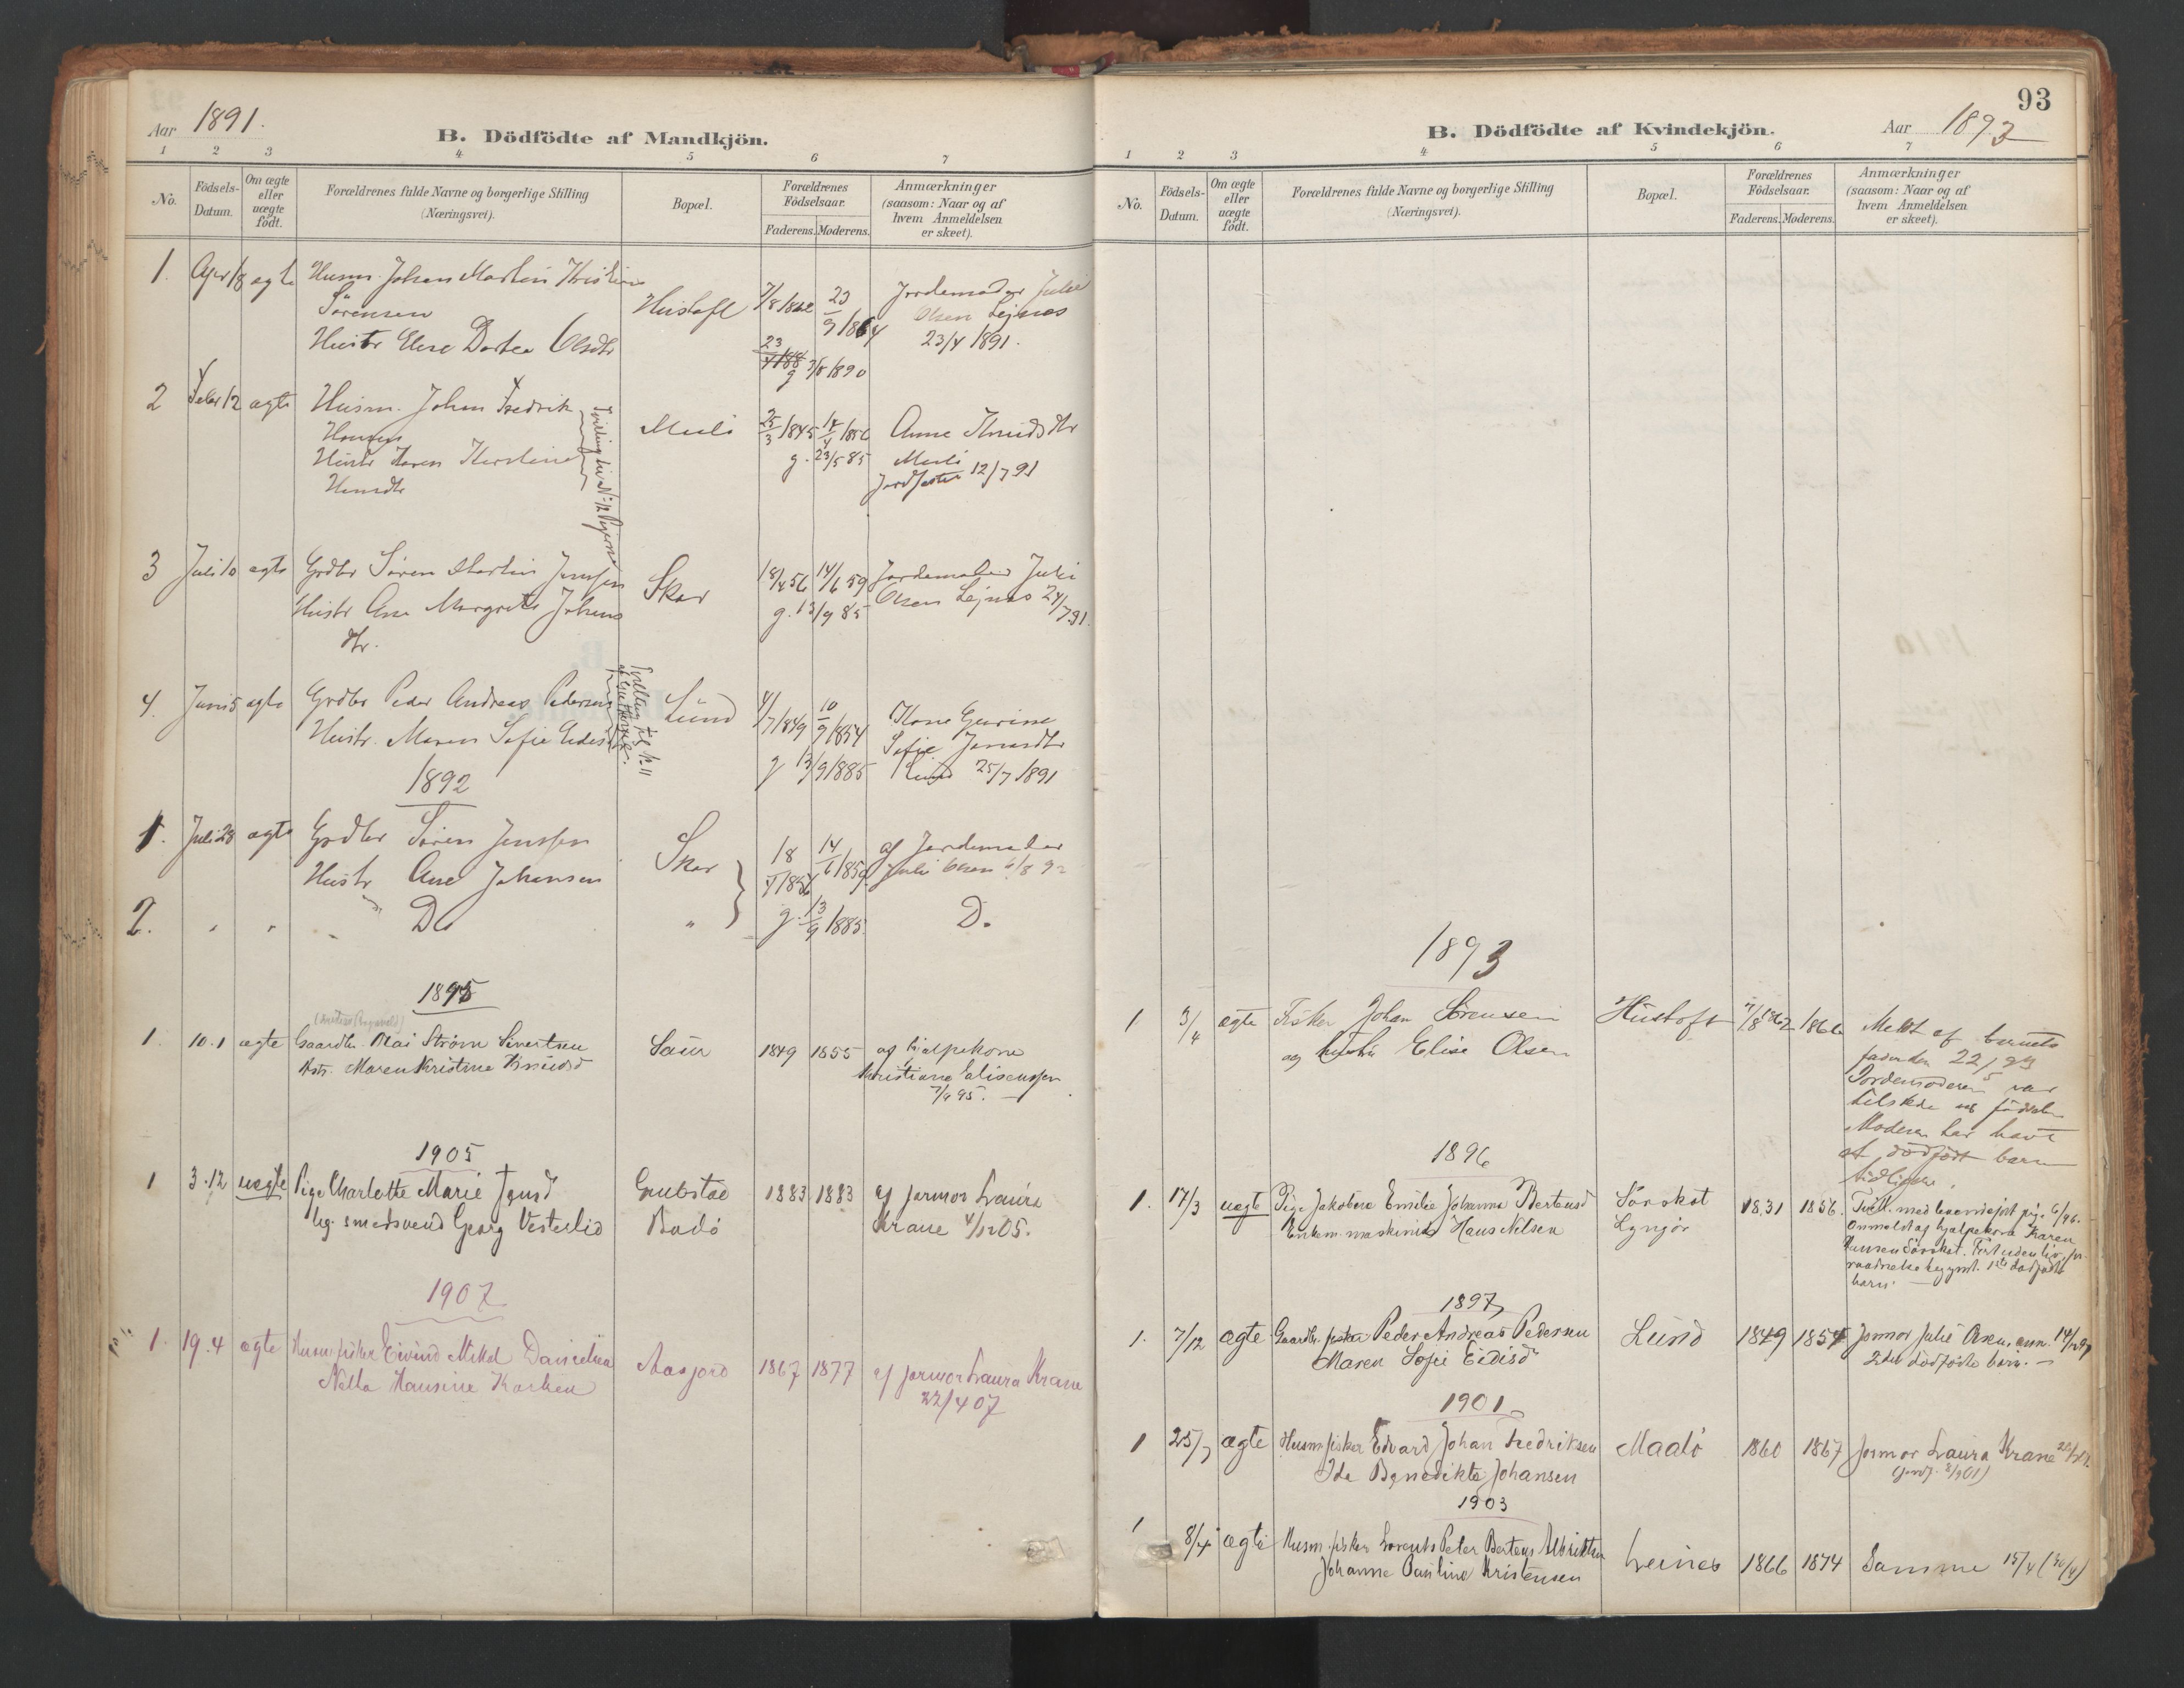 Aar 1891.
B. Dödfödte af Mandkjön.
1 2 3 4 5 6 7
No.
Födsels-
Datum.
Om ægte
eller
uægte
födt.
Forældrenes fulde Navne og borgerlige Stilling
(Næringsvei).
Bopæl.
Forældrenes
Födselsaar.
Faderens. Moderens.
Anmærkninger
(saasom: Naar og af
hvem Anmeldelsen
er skeet).
1. Apr 18 ægte Husm. Johan Martin Kristian
Sörensen
Hustr Elise Dortea Olsdtr
Hustoft 7/8 1862 23/9 1864
g 3/8 1890
Jordemoder Julie
Olsen Lejnes
23/4 1891.
2 Febr 12 ægte Husm. Johan Fredrik
Hansen
Hustr Karen Kerstine
Hansdtr
Tvilling til No 12 Pigerne
Meli 25/3 1845 14/4 1850
g. 23/5 85
Anne Knudsdtr
Meli
Jordfæstet 12/7 91
3 Juli 10 ægte Grdbr Sören Martin Jenssen
Hustr Ane Margrete Johans
dtr.
Skar 18/4 56 14/6 59
g. 13/9 85
Jordemoder Juli
Olsen Lejnes 24/7 91.
4. Juni 5 ægte Grdbr Peder Andreas Pedersen
Hustr. Maren Sofie Eidisdtr
Lund 4/7 1849 10/9 1854
g 13/9 1885
Kone Gurine
Sofie Jonsdtr
Lund 25/7 1891
1892
1. Juli 28 ægte Grdbr Sören Jenssen
Hustr Ane Johansen
Skar 18/4 1856 14/6 1859
af Jordemoder
Juli Olsen 6/8 92
2. " " " Do " g. 13/9 1885. Do
1895
1. 10.1 ægte Gaardbr. Olai Ström Sivertsen
Hstr. Maren Kristine Knudsd
Saur 1849 1855 af hjælpekone
Kristiane Elisenssen
7/4 95.
1905
1 3.12 uægte Pige Charlotte Marie Jensd
Ug. smedsvend Georg Vesterlid
Grubstad
Bodö
1883 1883 af jormor Laura
Krane 4/12 05.
1907
1. 19.4 ægte Husm. fisker Eivind Mikal Danielsen
Nella Hansine Karlsen
Aasjord 1867 1877 af jormor Laura Krane
22/4 07
93
B. Dödfödte af Kvindekjön.
Aar 1893
1 2 3 4 5 6 7
No.
Födsels-
Datum.
Om ægte
eller
uægte
födt.
Forældrenes fulde Navne og borgerlige Stilling
(Næringsvei).
Bopæl.
Forældrenes
Födselsaar.
Faderens. Moderens.
Anmærkninger
(saasom: Naar og af
hvem Anmeldelsen
er skeet).
1893
1 3/4 ægte Fisker Johan Sörensen
og hustr Elise Olsen
Hustoft 7/8 1862 1866 Meldt af barnets
fader den 22/5 93
Jordemoderen var
tilstede ved födselen
Moderen har havt
et dödfödt barn
tidligere.
1896
1. 17/3 uægte Pige Jakobine Emilie Johanna Bertensd
Enkem. maskinist Hans Nilsen
Sörskot
Lyngör
1831 1856. Tvill. med levendefödt pige 6/96.
Anmeldt af hjælpekone Karen
Hansen Sörskot. Föst uden liv, for-
raadnelse begyndt. 1ste dödfödte
barn.
1897
1. 7/12 ægte Gaardbr. fisker Peder Andreas Pedersen
Maren Sofie Eidisd
Lund 1849 1854 Jormor Julie Olsen, anm. 14/12 97
2det dödfödte barn.
1901
1 25/7 ægte Husm. fisker Edvard Johan Fredriksen
Ida Benedikte Johansen
Maalö 1860 1867 Jormor Laura Krane
(jordf. 8/9 01)
1903
1 8/4 ægte Husm. fisker Lorents Peter Bertens Albriktsen
Johanne Pauline Kristensen
Leines 1866 1874 Samme 15/4 (30/4)